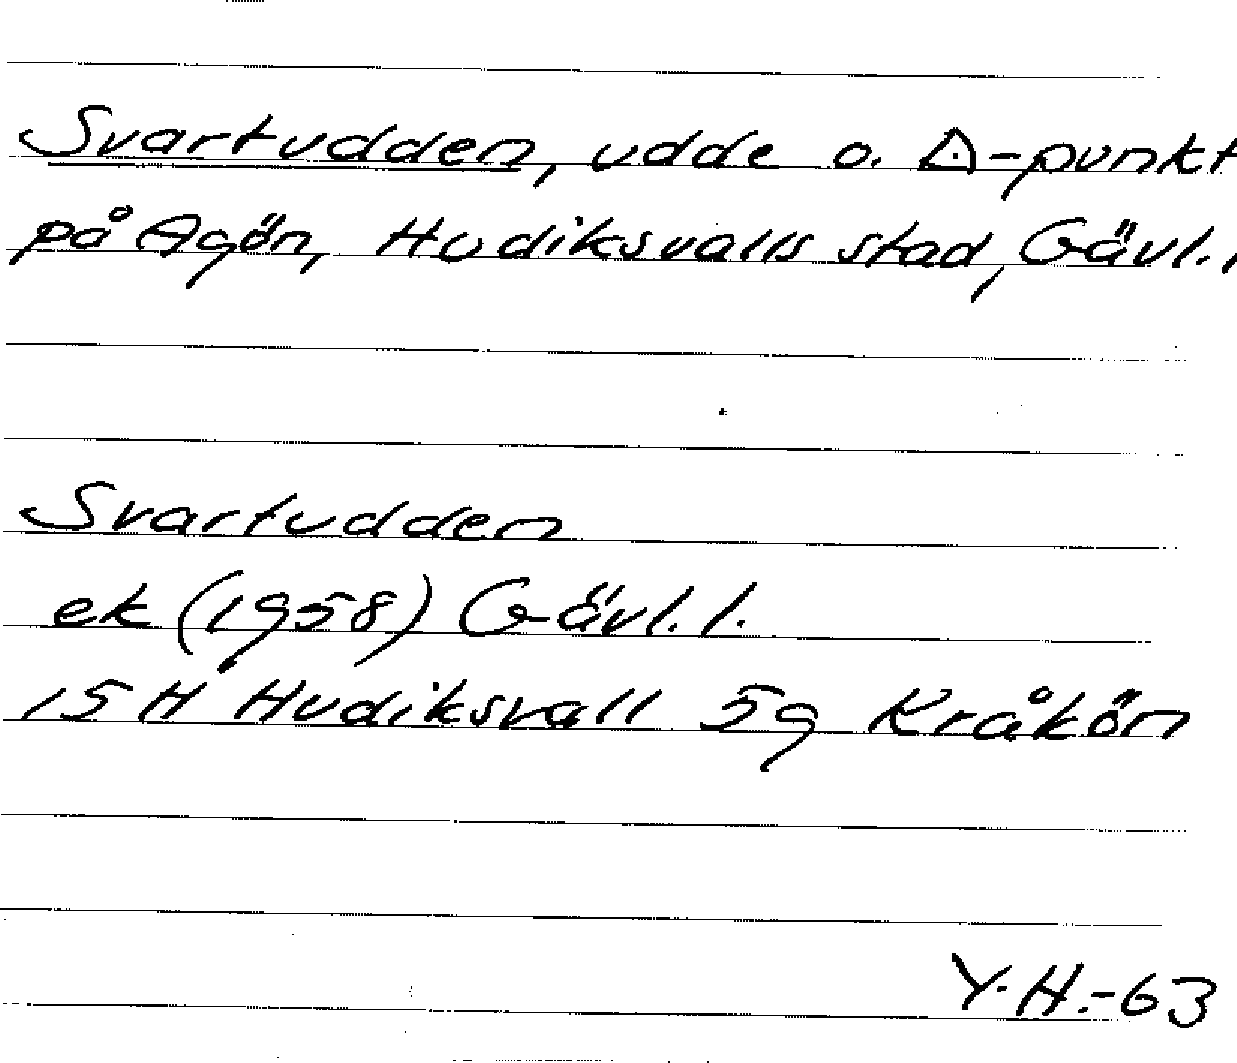 Svartudden, udde o. △-punkt
på Agön, Hudiksvalls stad, Gävl. l
Svartudden
ek (1958) Gävl. l.
15 H Hudiksvall 5g Kråkön
Y. H. -63